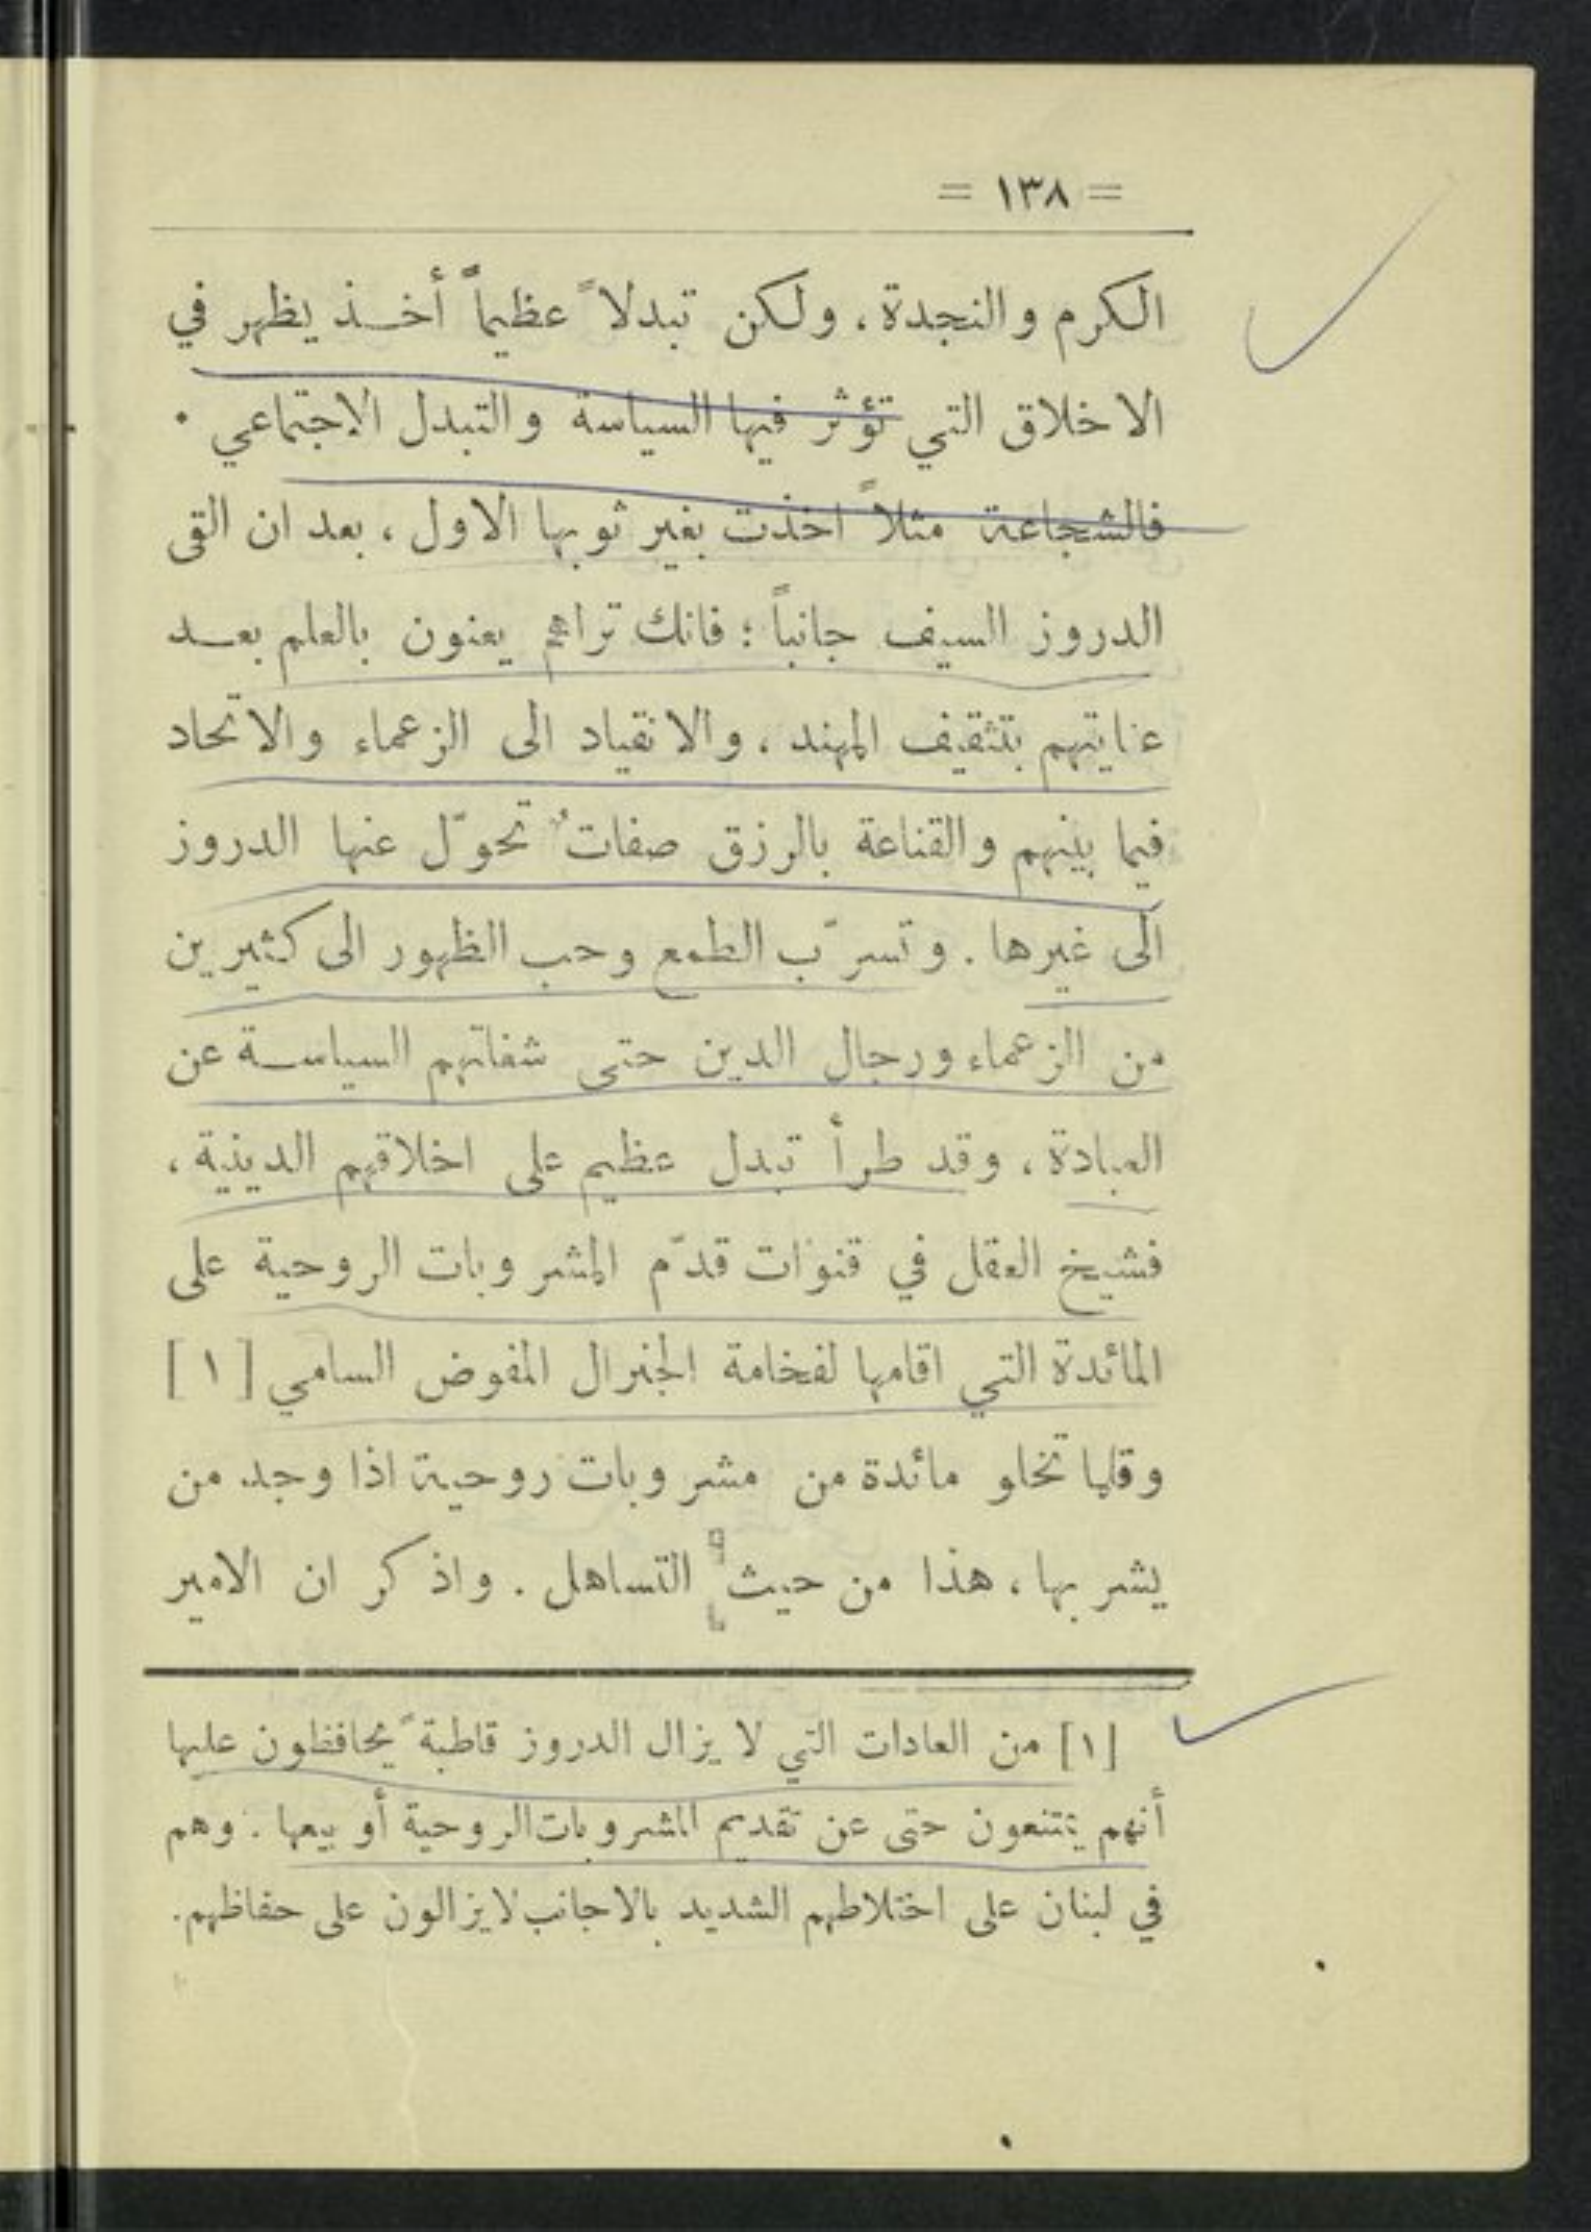 = ١٣٨ =
الكرم والنجدة ، ولكن تبدلاً عظيماً أخذ يظهر في
الاخلاق التي تؤثر فيها السياسة والتبدل الاجتماعي .
فالشجاعة مثلاً اخذت بغير ثوبها الاول ، بعد ان القى
الدروز السيف جانباً ؛ فانك تراهم يعنون بالعلم بعد
عنايتهم بتثقيف المهند ، والانقياد الى الزعماء والاتحاد
فيما بينهم والقناعة بالرزق صفاتٌ تحوّل عنها الدروز
الى غيرها . وتسرّب الطمع وحب الظهور الى كثيرين
من الزعماء ورجال الدين حتى شغلتهم السياسة عن
العبادة ، وقد طرأ تبدل عظيم على اخلاقهم الدينية ،
فشيخ العقل في قنوات قدّم المشروبات الروحية على
المائدة التي اقامها لفخامة الجنرال المفوض السامي [ ١ ]
وقلما تخلو مائدة من مشروبات روحية اذا وجد من
يشربها ، هذا من حيث التساهل . واذكر ان الامير
[١] من العادات التي لا يزال الدروز قاطبةً يحافظون عليها
أنهم يمتنعون حتى عن تقديم المشروبات الروحية أو بيعها . وهم
في لبنان على اختلاطهم الشديد بالاجانب لا يزالون على حفاظهم.